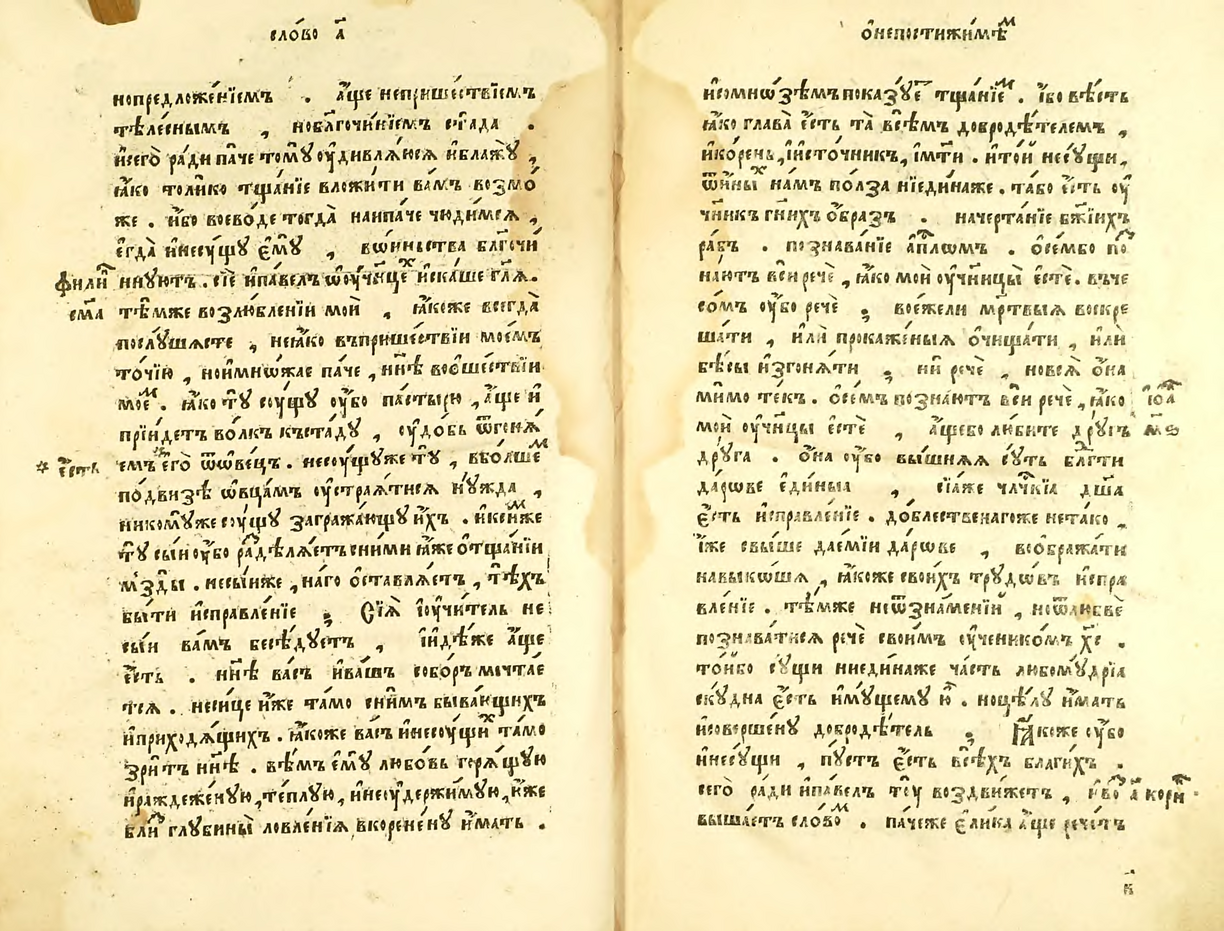 сло́во а҃
нопредложе́нїемъ . А҆́ще непришествїемъ
тѣле́снымъ , ноблагочи́нїемъ ста́да .
и҆сего̀ ра́ди па́че томꙋ̀ оу҆дивлѧ́юсѧ и҆блажꙋ̀ ,
ꙗ҆́ко толи́ко тща́нїе вложи́ти ва́мъ возмо́
же . и҆́бо воево́де тогда̀ наипа́че чюди́мсѧ ,
є҆гда̀ и҆несꙋ́щꙋ є҆мꙋ̀ , вѡ́иньства благочи
ннꙋютъ . сїѐ и҆па́велъ ѿоу҆чн҃цехъ и҆ска́ше гл҃ѧ .
фили́п
сїма
тѣ́мже возлю́бленїи моѝ , ꙗ҆́коже всегда̀
послꙋ́шѧсте , неꙗ҆́ко въприше́ствїи мое́мъ
то́чїю , ноимно́жае па́че , нн҃ѣ воѿше́ствїи
мое́м . ꙗ҆́ко тꙋ̀ сꙋ́щꙋ оу҆́бо па́стырю , а҆́ще и҆
прїи́детъ во́лкъ къста́дꙋ , оу҆до́бь ѿгонѧ́
емъ є҆го̀ ѿѡ҆ве́цъ . несꙋ́щꙋже тꙋ̀ , вбо́лшем
* є҆́сть
по́двизѣ ѡ҆вца́мъ оу҆страѧ́тисѧ нꙋ́жда ,
никомꙋ́же сꙋ́щꙋ загражда́ющꙋ и҆́хъ . и҆ксим же
тꙋ̀ сы́и оу҆́бо раздѣлѧ́етъ сни́ми ꙗ҆́же о҆тща́нїи
мзды̀ . несы́иже , на́го ѡ҆ставлѧ́етъ , тѣ́хъ
бы́ти и҆справле́нїе ; Сїѧ̀ і҆оучи́тель не
сы́и ва́мъ бесѣ́дꙋетъ , і҆идѣ́же а҆́ще
є҆́сть . нн҃ѣ ва́съ и҆ва́шъ собо́ръ мечта́е
тсѧ . неси́це и҆́же та́мо сни́мъ быва́ющихъ
и҆приходѧ́щихъ . ꙗ҆́коже ва́съ и҆несꙋ́щихъ та́мо
зри́тъ нн҃ѣ . вѣ́мъ є҆мꙋ̀ любо́вь горѧ́щꙋю
и҆раждеже́нꙋю , те́плꙋю , и҆неꙋдержи́мꙋю , и҆́же
вглꙋбины̀ ловле́нїѧ , вкорене́нꙋ и҆́мать .
о҆непостижи́мѣм
и҆ѡмнѡ́зѣмъ показꙋ́ет тща́нїем . і҆́бо вѣ́сть
ꙗ҆́ко глава̀ є҆́сть та̀ всѣ́мъ добродѣ́телемъ ,
и҆ко́рень , і҆исто́чникъ , і҆мт҃и . и҆то́й несꙋ́щи ,
ѿи҆ны́х на́мъ по́лза ниеди́наже . та́ бо є҆́сть оу҆
чн҃къ гнⷭ҇ихъ о҆́бразъ . начерта́нїе бж҃їихъ
ра́бъ . познава́нїе а҆пⷭ҇лѡмъ . о҆се́мбо по
зна́ютъ всѝ речѐ , ꙗ҆́ко мои̑ оу҆чн҃цы̀ є҆стѐ . въче
со́мъ оу҆́бо речѐ ; воє́жели мр҃твыѧ воскре
ша́ти , и҆лѝ прокаже́ныѧ ѡ҆чища́ти , и҆лѝ
бѣ́сы и҆згонѧ́ти ; нѝ речѐ , новсѧ̀ ѻ҆на̀
ми́мо те́къ . о҆се́мъ позна́ютъ всѝ речѐ , ꙗ҆́ко
і҆ѡа҃н
м҃ѕ
мои̑ оу҆чн҃цы є҆стѐ , а҆́щебо лю́бите дрꙋ́гъ
дрꙋ́га . ѻ҆на̀ оу҆́бо вы́шнѧѧ сꙋ́ть блгⷣти
да́рове є҆ди́ныа , сїа́же члч҃кїа дш҃а
є҆́сть и҆справле́нїе . до́блественагоже нета́ко ,
і҆́же свы́ше дае́мїи да́рове , воѡбража́ти
навыко́шѧ , ꙗ҆́коже свои́хъ трꙋдо́въ и҆спра
вле́нїе . тѣ́мже неѿзна́менїй , ноѿлюбвѐ
познава́тисѧ речѐ свои́мъ оу҆ченико́мъ хс҃ .
то́ибо сꙋ́щи ниеди́наже ча́сть любомꙋ́дрїа
скꙋ́дна є҆́сть и҆мꙋ́щемꙋ ю҆̀ . ноцѣ́лꙋ и҆́мать
и҆соверше́нꙋ добродѣ́тель ; Ꙗ҆́коже оу҆́бо
и҆несꙋ́щи , пꙋ́стъ є҆́сть всѣ́хъ благи́хъ .
сего̀ ра́ди и҆па́велъ тꙋ̀ воздви́жетъ ,
а҃ кори́н
выша́етъ сло́вом . па́чеже є҆ли́ка а҆́ще рече́тъ
в҃